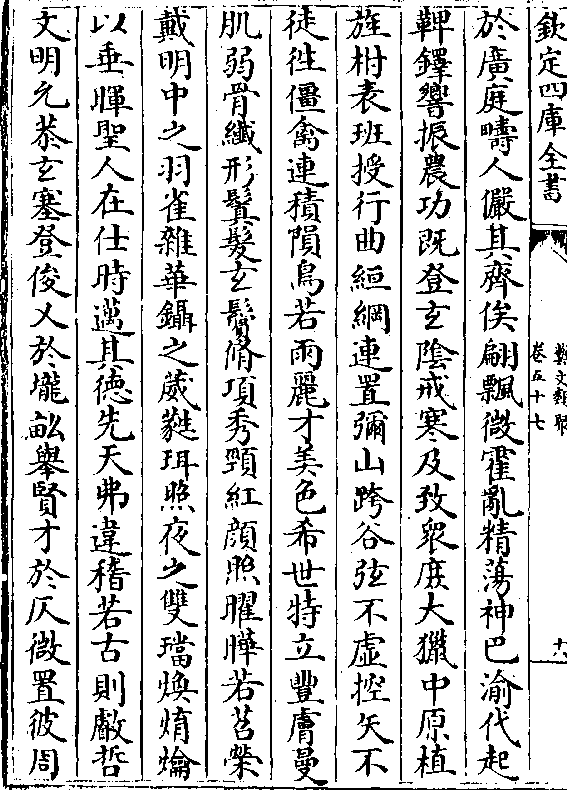 欽定四庫全書
藝文類聚
卷五十七
於廣庭疇人儼其齊俟翩飄微霍亂精蕩神巴渝代起
鞞鐸響振農功既登玄陰戒寒及致衆庶大獵中原植
旌柎表班授行曲絙網連罝彌山跨谷弦不虛控矢不
徒徃僵禽連積隕鳥若雨麗才美色希世特立豐膚曼
肌弱骨纖形鬒髮玄鬢脩項秀頸紅顔照曜曄若苕榮
戴明中之羽雀雜華鑷之葳蕤珥照夜之雙璫煥焴爚
以垂暉聖人在仕時邁其徳先天弗違稽若古則叡哲
文明允恭玄塞登俊乂於壠畝舉賢才於仄微置彼周